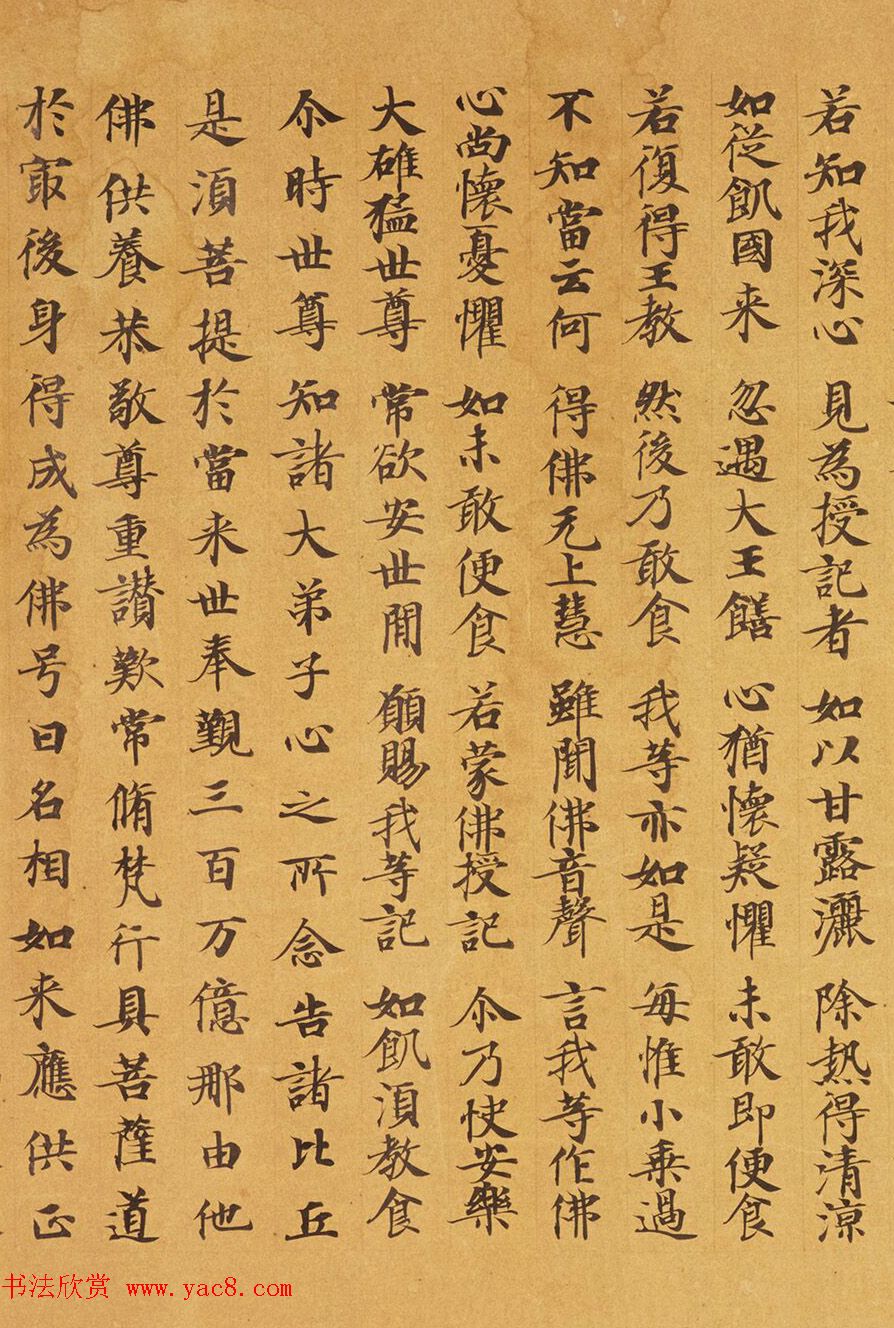 若知我深心 見為授記者 如以甘露灑 除熱得清涼
如從飢國来 忽遇大王饍 心猶懷疑懼 未敢即便食
若復得王教 然後乃敢食 我等亦如是 每惟小乗過
不知當云何 得佛无上慧 雖聞佛音聲 言我等作佛
心尚懷憂懼 如未敢便食 若蒙佛授記 尒乃快安樂
大雄猛世尊 常欲安世間 願賜我等記 如飢須教食
尒時世尊知諸大弟子心之所念告諸比丘
是須菩提於當来世奉覲三百万億那由他
佛供養恭敬尊重讃歎常脩梵行具菩薩道
於冣後身得成為佛号曰名相如来應供正
书法欣赏 www.yac8.com